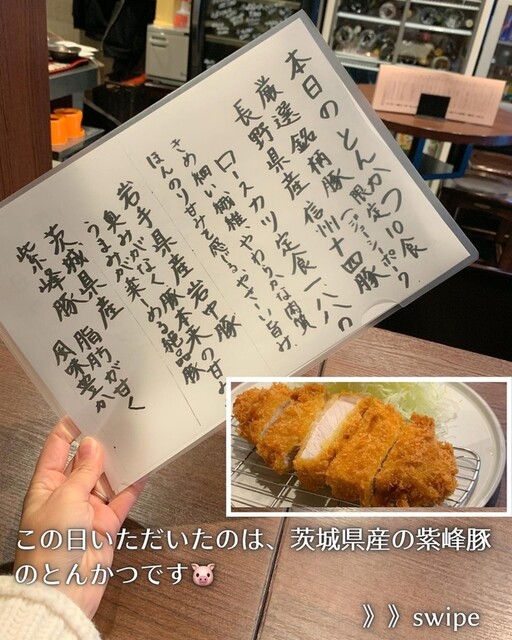 本日のとんかつ限定10食
厳選銘柄豚
長野県産 信州十四豚
ロースカツ定食 一八〇
きめ細い繊維、やわらかな肉質
ほんのり甘みを感じるやさしい旨み
岩手県産 岩中豚
臭みがなく豚本来の甘み
うまみが楽しめる絶品豚
茨城県産 脂肪が甘く
紫峰豚 風味豊か
この日いただいたのは、茨城県産の紫峰豚
のとんかつです🐷
》》swipe